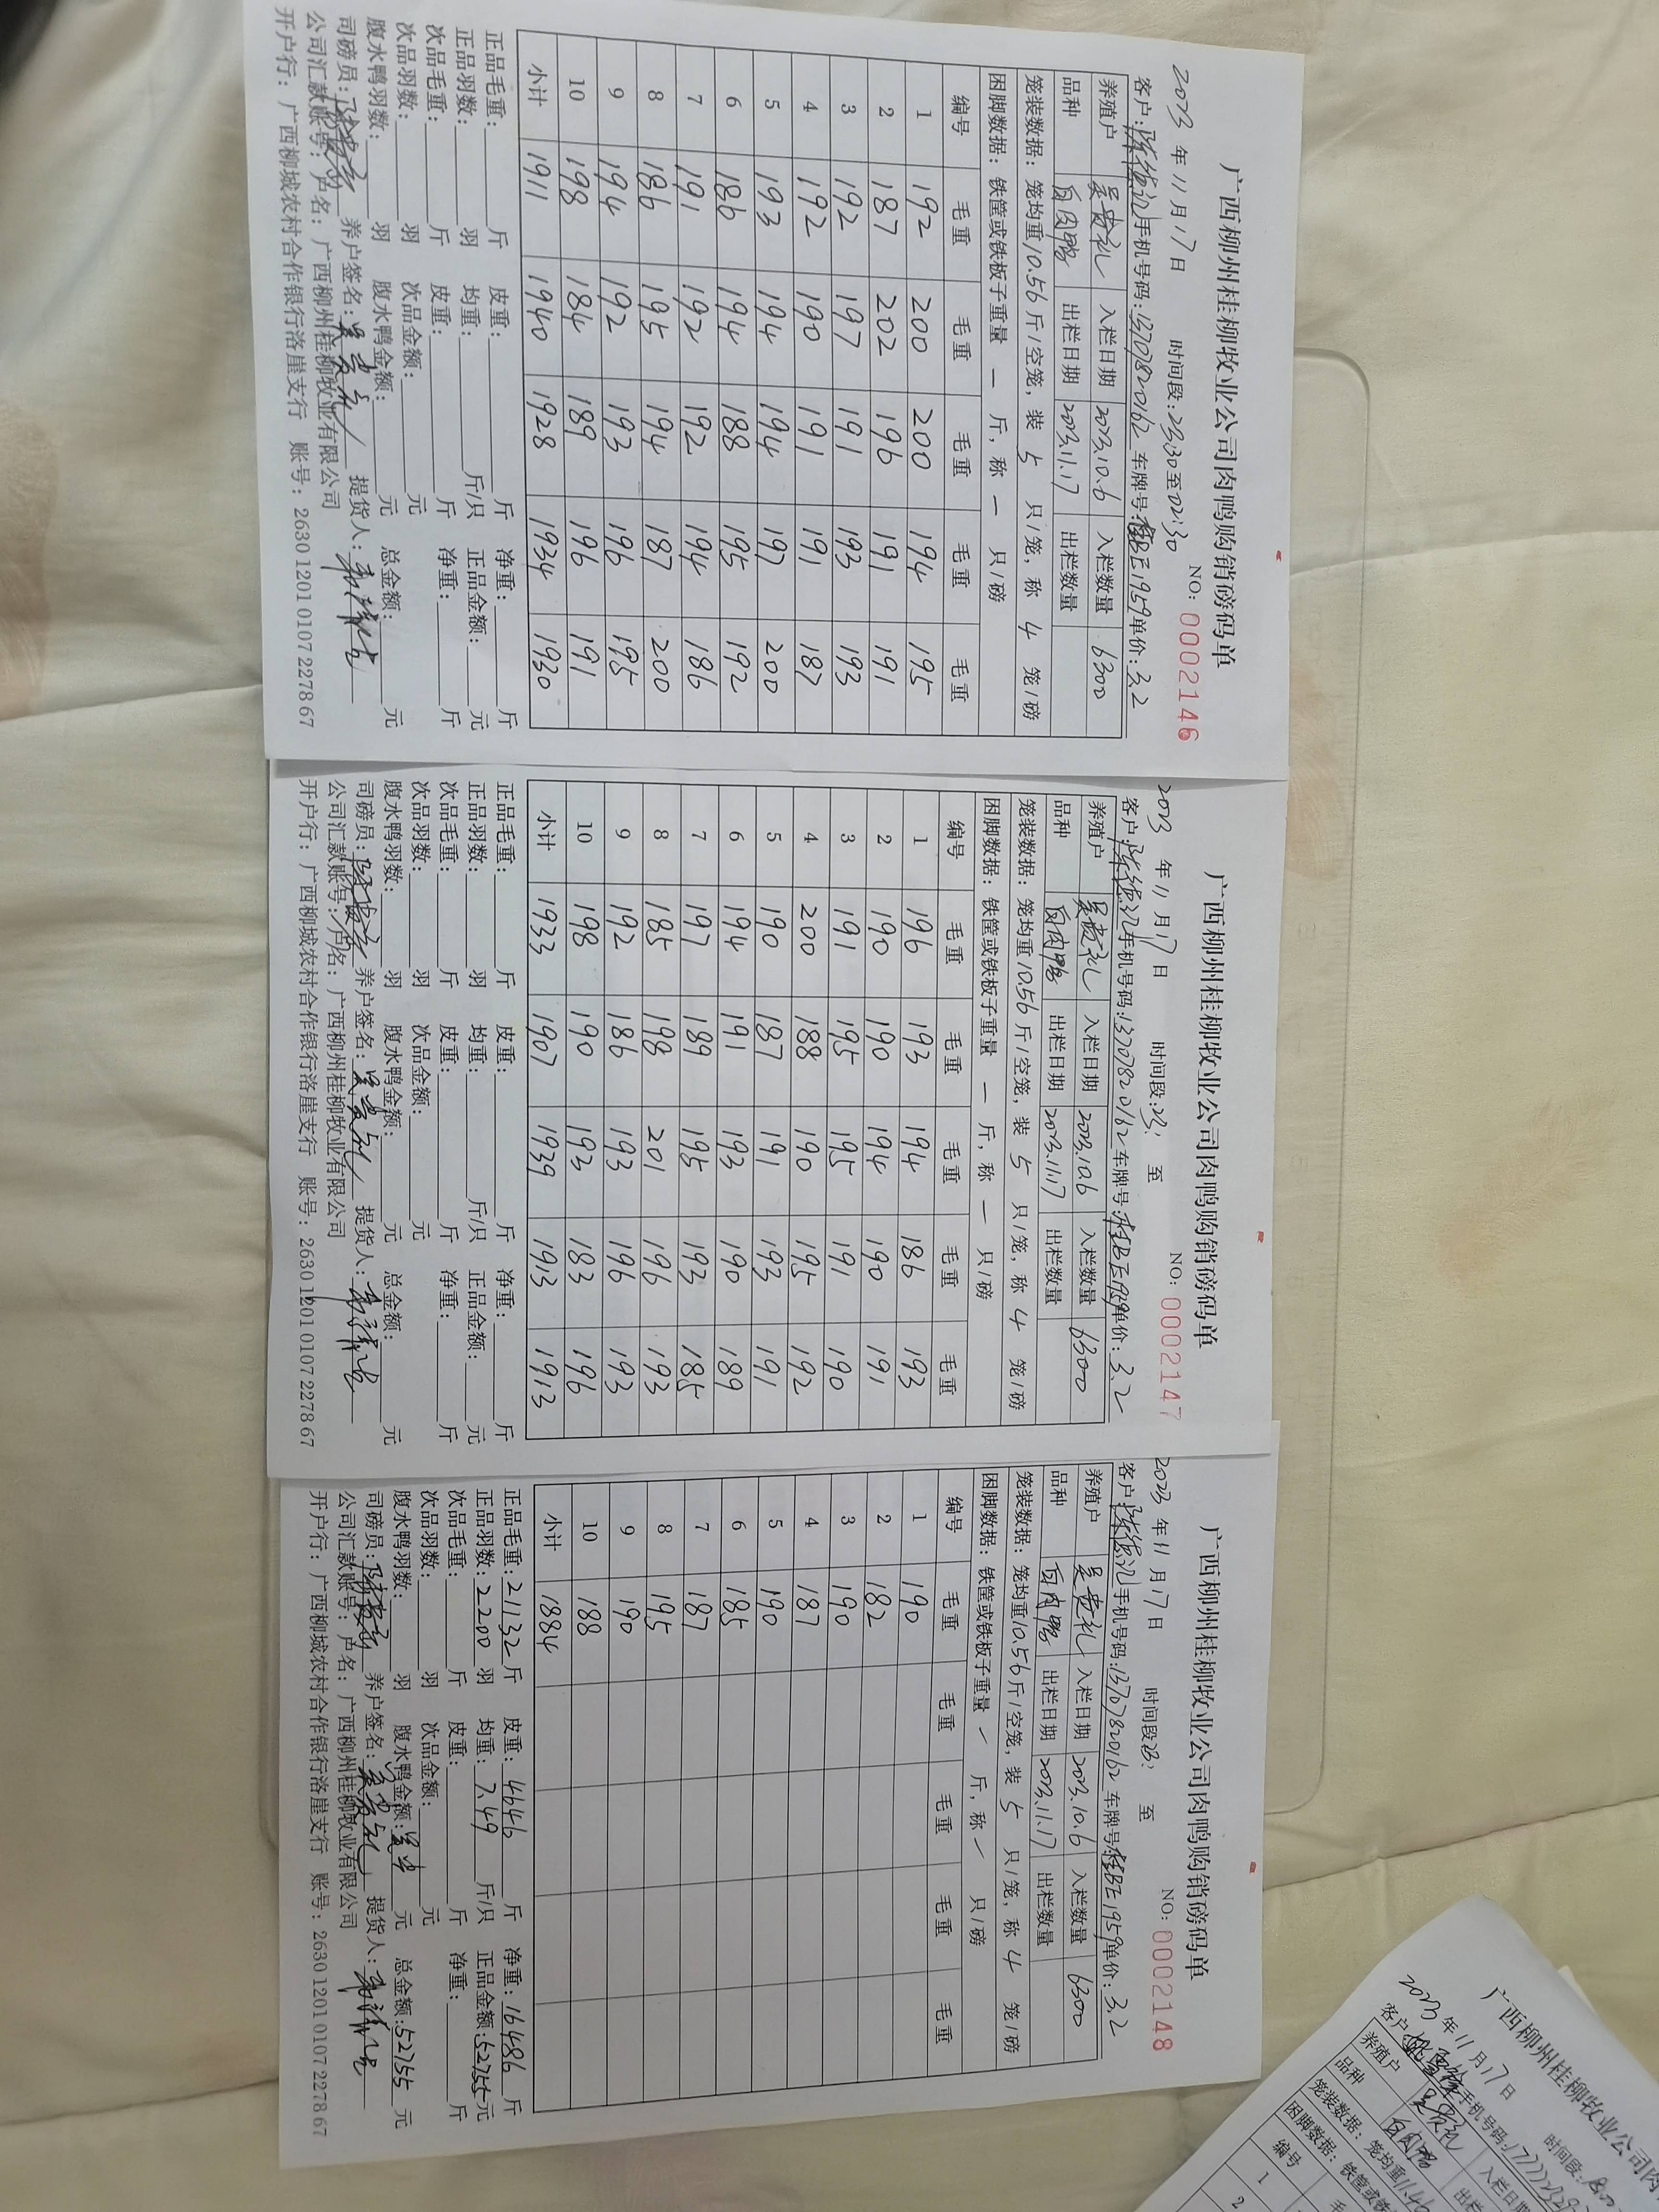 广西柳州桂柳牧业公司肉鸭购销磅码单
NO: 0002146
2023 年 11 月 17 日 时间段: 23:30 至 02:30
客户: 手机号码: 13707820162 车牌号: 桂BE1959 单价: 3.2
养殖户 吴贵礼 入栏日期 2023.10.6 入栏数量 6300
品种 白肉鸭 出栏日期 2023.11.17 出栏数量
笼装数据: 笼均重 10.56 斤/空笼, 装 5 只/笼, 称 4 笼/磅
困脚数据: 铁筐或铁板子重量 一 斤, 称 一 只/磅
编号 毛重 毛重 毛重 毛重 毛重
1 192 200 200 194 195
2 187 202 196 191 191
3 192 197 191 193 193
4 192 190 191 191 187
5 193 194 194 197 200
6 186 194 188 195 192
7 191 192 192 194 186
8 186 195 194 187 200
9 194 192 193 196 195
10 198 184 189 196 191
小计 1911 1940 1928 1934 1930
正品毛重: 斤 皮重: 斤 净重: 斤
正品羽数: 羽 均重: 斤/只 正品金额: 元
次品毛重: 斤 皮重: 斤 净重: 斤
次品羽数: 羽 次品金额: 元
腹水鸭羽数: 羽 腹水鸭金额: 元 总金额: 元
司磅员: 养户签名: 吴贵礼 提货人:
公司汇款账号: 户名: 广西柳州桂柳牧业有限公司
开户行: 广西柳城农村合作银行洛崖支行 账号: 2630 1201 0107 2278 67
广西柳州桂柳牧业公司肉鸭购销磅码单
NO: 0002147
2023 年 11 月 17 日 时间段: 23: 至
客户: 手机号码: 13707820162 车牌号: 桂BE1959 单价: 3.2
养殖户 吴贵礼 入栏日期 2023.10.6 入栏数量 6300
品种 白肉鸭 出栏日期 2023.11.17 出栏数量
笼装数据: 笼均重 10.56 斤/空笼, 装 5 只/笼, 称 4 笼/磅
困脚数据: 铁筐或铁板子重量 一 斤, 称 一 只/磅
编号 毛重 毛重 毛重 毛重 毛重
1 196 193 194 186 193
2 190 190 194 190 191
3 191 195 195 191 190
4 200 188 190 195 192
5 190 187 191 193 191
6 194 191 193 190 189
7 197 189 195 193 185
8 185 198 201 196 193
9 192 186 193 196 193
10 198 190 193 183 196
小计 1933 1907 1939 1913 1913
正品毛重: 斤 皮重: 斤 净重: 斤
正品羽数: 羽 均重: 斤/只 正品金额: 元
次品毛重: 斤 皮重: 斤 净重: 斤
次品羽数: 羽 次品金额: 元
腹水鸭羽数: 羽 腹水鸭金额: 元 总金额: 元
司磅员: 养户签名: 吴贵礼 提货人:
公司汇款账号: 户名: 广西柳州桂柳牧业有限公司
开户行: 广西柳城农村合作银行洛崖支行 账号: 2630 1201 0107 2278 67
广西柳州桂柳牧业公司肉鸭购销磅码单
NO: 0002148
2023 年 11 月 17 日 时间段: 23: 至
客户: 手机号码: 13707820162 车牌号: 桂BE1959 单价: 3.2
养殖户 吴贵礼 入栏日期 2023.10.6 入栏数量 6300
品种 白肉鸭 出栏日期 2023.11.17 出栏数量
笼装数据: 笼均重 10.56 斤/空笼, 装 5 只/笼, 称 4 笼/磅
困脚数据: 铁筐或铁板子重量 一 斤, 称 一 只/磅
编号 毛重 毛重 毛重 毛重 毛重
1 190
2 182
3 190
4 187
5 190
6 185
7 187
8 195
9 190
10 188
小计 1884
正品毛重: 21132 斤 皮重: 4646 斤 净重: 16486 斤
正品羽数: 2200 羽 均重: 7.49 斤/只 正品金额: 52755 元
次品毛重: 斤 皮重: 斤 净重: 斤
次品羽数: 羽 次品金额: 元
腹水鸭羽数: 羽 腹水鸭金额: 元 总金额: 52755 元
司磅员: 养户签名: 吴贵礼 提货人:
公司汇款账号: 户名: 广西柳州桂柳牧业有限公司
开户行: 广西柳城农村合作银行洛崖支行 账号: 2630 1201 0107 2278 67
广西柳州桂柳牧业公司肉
2023 年 11 月 17 日 时间段: 8:
客户: 手机号码:
养殖户 吴贵礼 入栏日
品种 白肉鸭 出栏
笼装数据: 笼均重 11.46
困脚数据: 铁筐或铁
编号 毛
1
2